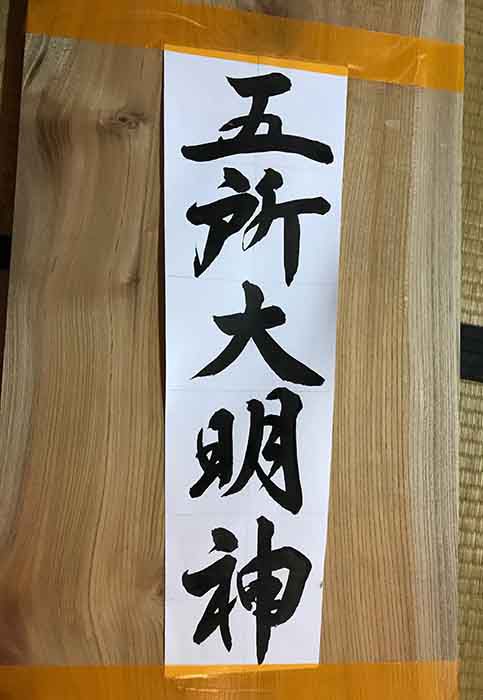 五所大明神